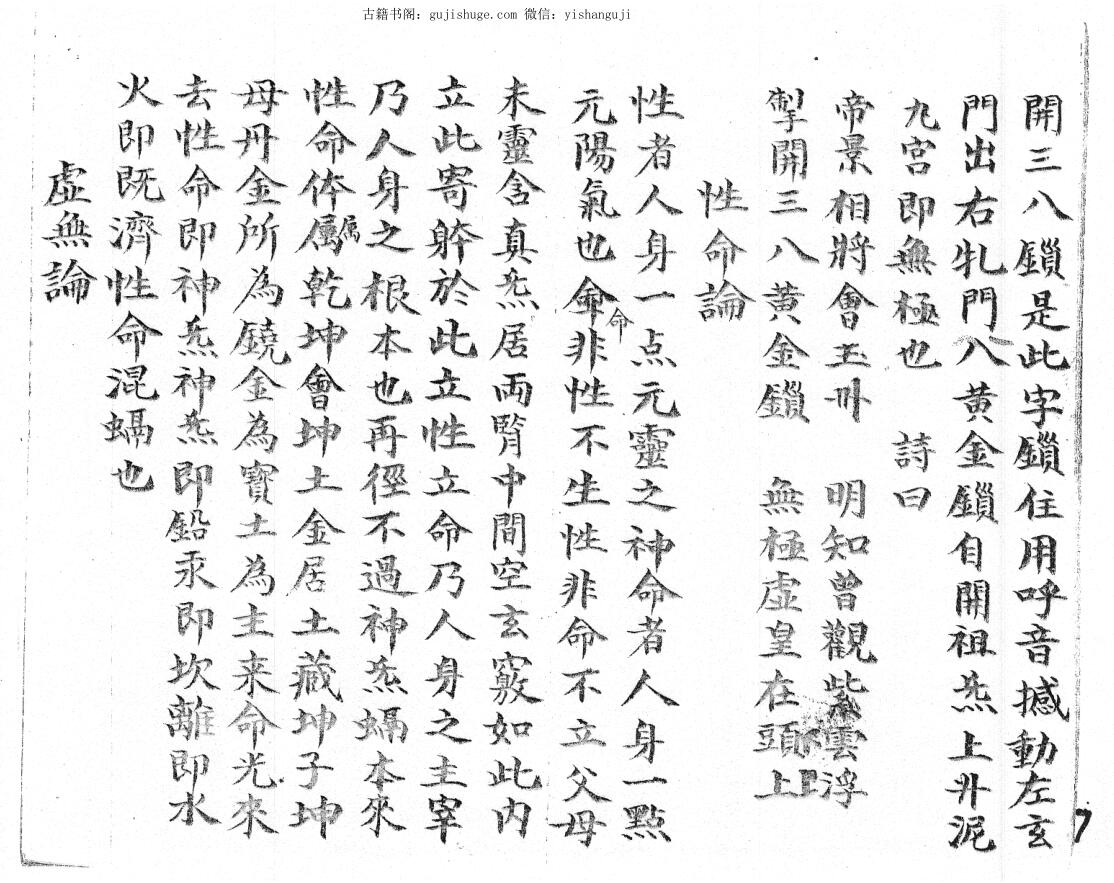 古籍书阁：gujishuge.com 微信：yishanguji
開三八鎖是此字鎖住用呼音撼動左玄
門出右牝門八黄金鎖自開祖炁上升泥
九宮即無極也　詩曰
帝景相將會玉　明知曽觀紫雲浮
掣開三八黄金鎖　無極虛皇在頭上
性命論
性者人身一点元靈之神命者人身一點
元陽氣也命命非性不生性非命不立父母
未靈含真炁居両腎中間空玄竅如此内
立此寄躰於此立性立命乃人身之主宰
乃人身之根本也再徑不過神炁蟎本來
性命体屬属乾坤會坤土金居土藏坤子坤
母丹金所為鐃金為寳土為主来命光來
去性命即神炁神炁即鉛汞即坎離即水
火即既濟性命混蟎也
虛無論
7